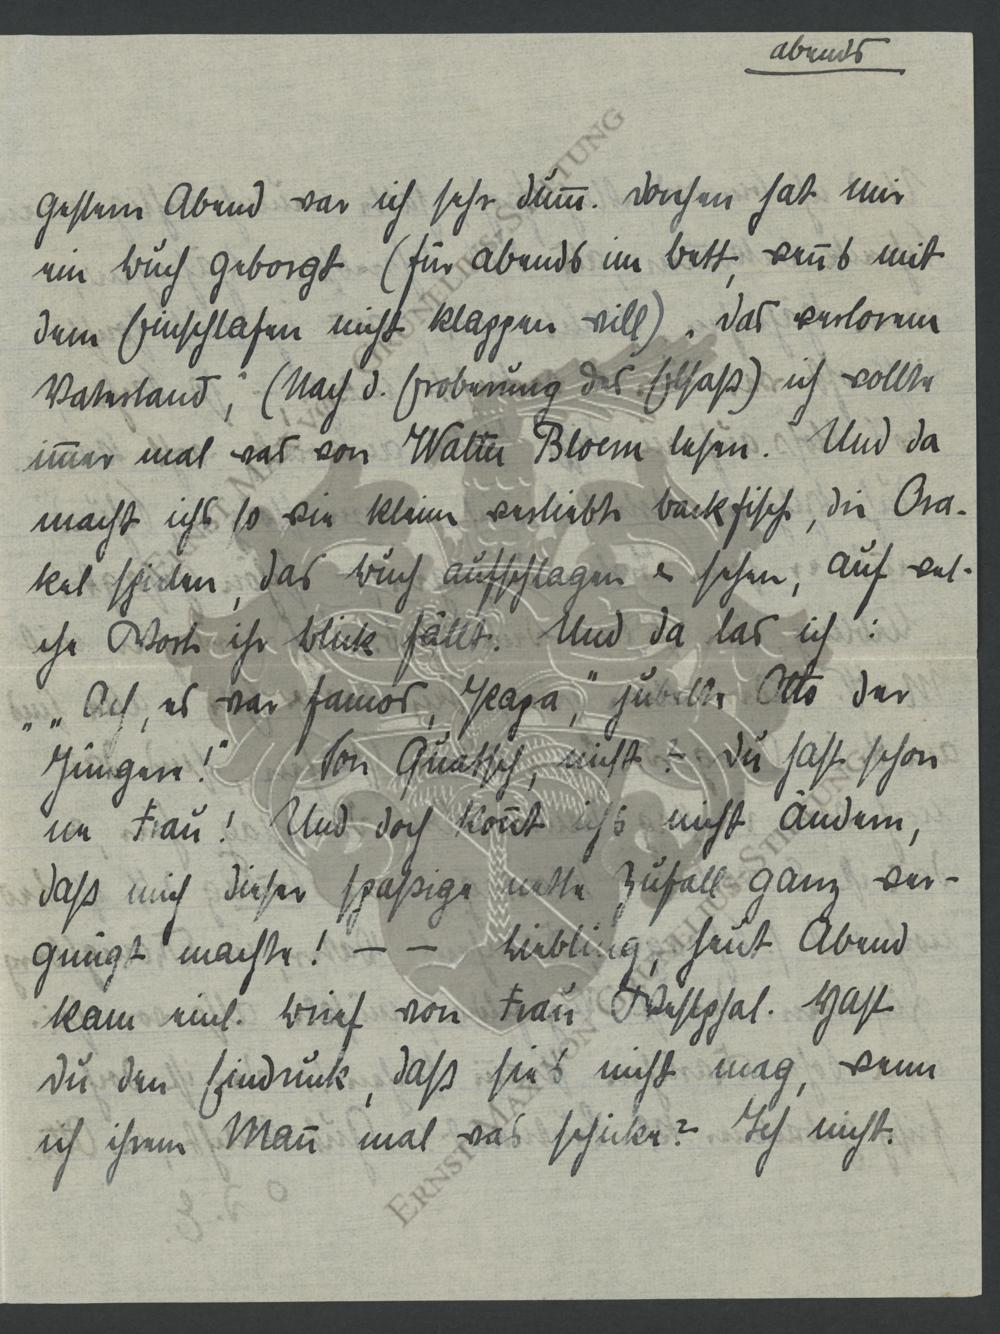 abends
Gestern Abend war ich sehr dum̅. Dorchen hat mir
ein Buch geborgt (für abends im Bett, wen̅s mit
dem Einschlafen nicht klappen will) „das verlorene
Vaterland“, (Nach d. Eroberung des Elsaß) ich wollte
im̅er mal was von Walter Bloem lesen. Und da
macht ichs so wie kleine verliebte Backfische, die Ora-
kel spielen, das Buch aufschlagen & sehen, auf wel-
che Worte ihr Blick fällt. Und da las ich:
„„Ach, es war famos, Papa,“ jubelte Otto der
Jüngere!“ Son Quatsch, nicht? Du hast schon
ne Frau! Und doch kon̅t ichs nicht ändern,
daß mich dieser spaßige nette Zufall ganz ver-
gnügt machte! — — Liebling, heut Abend
kam einl. Brief von Frau Westphal. Hast
du den Eindruck, daß sie's nicht mag, wenn
ich ihrem Man̅ mal was schicke? Ich nicht.
ERNST MAX VON GRUNELIUS-STIFTUNG
ERNST MAX VON GRUNELIUS-STIFTUNG